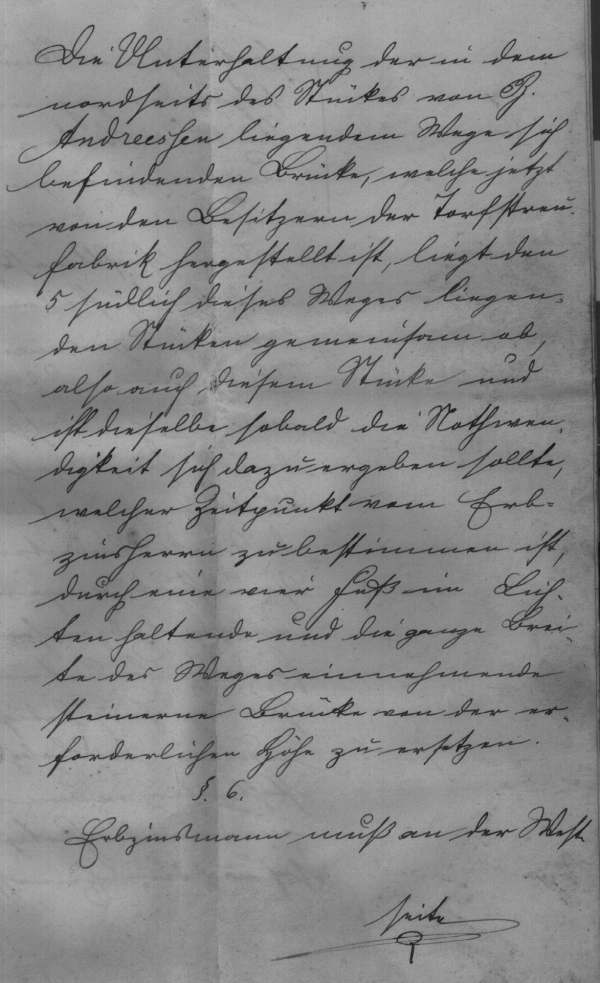 Die Unterhaltung der in dem
nordseits des Stückes von G.
Andreessen liegendem Wege sich
befindenden Brücke, welche jetzt
von den Besitzern der Torfstreu-
fabrik hergestellt ist, liegt den
5 südlich dieses Weges liegen-
den Stücken gemeinsam ob,
also auch diesem Stücke und
ist dieselbe sobald die Nothwen-
digkeit sich dazu ergeben sollte,
welcher Zeitpunkt vom Erb-
zinsherrn zu bestimmen ist,
durch eine vier Fuß im Lich-
ten haltende und die ganze Brei-
te des Weges einnehmende
steinerne Brücke von der er-
forderlichen Höhe zu ersetzen.
§. 6.
Erbzinsmann muß an der West-
seite